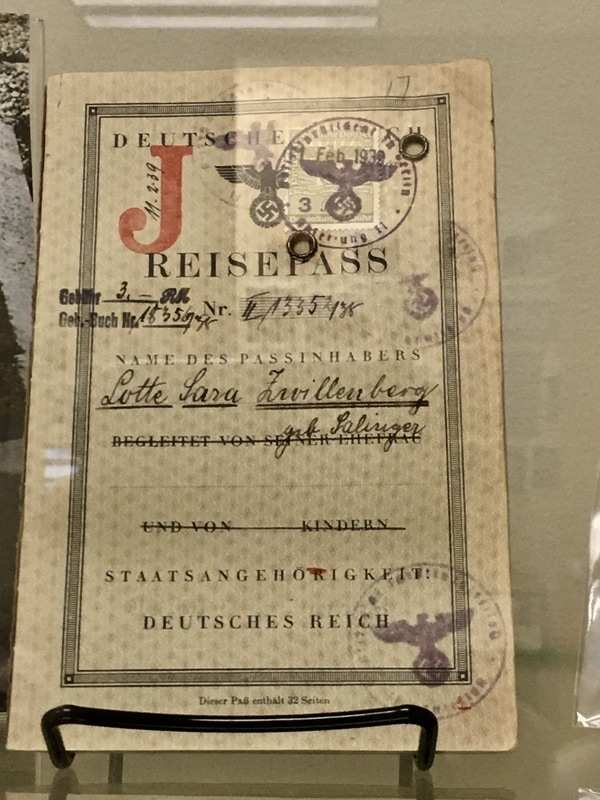 17
DEUTSCHES REICH
J
11.2.39
Feb. 1939
3
REISEPASS
Gebühr 3,— RM
Nr. II/1335/38
Geb.-Buch Nr.
NAME DES PASSINHABERS
Lotte Sara Zwillenberg
geb. Salinger
BEGLEITET VON SEINER EHEFRAU
UND VON KINDERN
STAATSANGEHÖRIGKEIT:
DEUTSCHES REICH
Dieser Paß enthält 32 Seiten